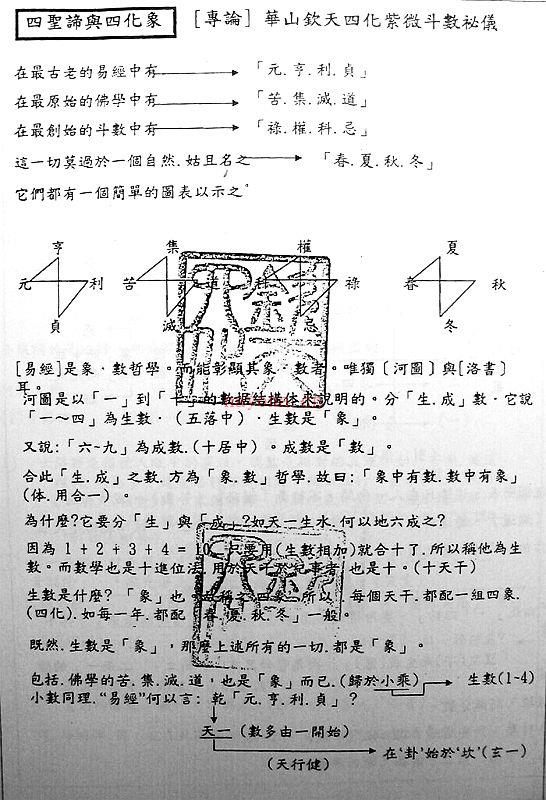 四聖諦與四化象 [專論] 華山欽天四化紫微斗數祕儀
在最古老的易經中有 「元.亨.利.貞」
在最原始的佛學中有 「苦.集.滅.道」
在最創始的斗數中有 「祿.權.科.忌」
這一切莫過於一個自然.姑且名之 「春.夏.秋.冬」
它們都有一個簡單的圖表以示之。
亨 集 權 夏
元 利 苦 道 科 祿 春 秋
貞 滅 忌 冬
[易經]是象.數哲學。而能彰顯其象.數者。唯獨〔河圖〕與[洛書]
耳。
河圖是以「一」到「十」的數据結構体來說明的。分「生.成」數.它說
「一～四」為生數.(五落中).生數是「象」。
又說:「六~九」為成數.(十居中)。成數是「數」。
合此「生.成」之數.方為「象.數」哲學.故曰:「象中有數.數中有象」
(体.用合一)。
為什麼?它要分「生」與「成」?如天一生水.何以地六成之?
因為 1 + 2 + 3 + 4 = 10 只要用(生數相加)就合十了.所以稱他為生
數。而數學也是十進位法.用於天干於紀事者.也是十。(十天干)
生數是什麼?「象」也 稱之四象 所以 每個天干.都配一組四象.
(四化).如每一年.都配「春.夏.秋.冬」一般。
既然.生數是「象」，那麼上述所有的一切.都是「象」。
包括.佛學的苦.集.滅.道，也是「象」而已.(歸於小乘) 生數(1~4)
小數同理."易經"何以言: 乾「元.亨.利.貞」?
天一(數多由一開始)
(天行健) 在'卦'始於'坎'(玄一)